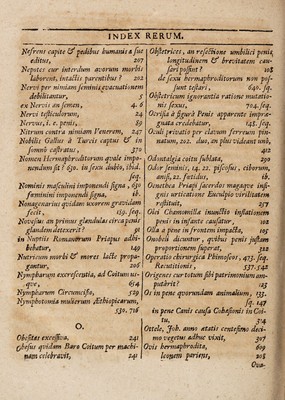 INDEX RERUM.
Nefrens capite & pedibus humanis a sue
editus, 207
Nepotes cur interdum avorum morbis
laborent, intactis parentibus? 202
Nervi per nimiam seminis evacuationem
debilitantur, 5
ex Nervis an semen, 4. 6
Nervi testiculorum, 24
Nervus, i. e. penis, 89
Nitrum contra nimiam Venerem, 247
Nobilis Gallus à Turcis captus & in
somnô castratus, 370
Nomen Hermaphroditorum quale imponendum
sit? 630. in sexu dubio, ibid.
seq.
Nominis masculini imponendi signa, 630
feminini imponendi signa, ib.
Nonagenarius quidam uxorem gravidam
fecit, 159. seq.
Novesas, an primus glandulas circa penis
glandem detexerit? 91
in Nuptiis Romanorum Priapus adhibebatur,
149
Nutricum morbi & mores lacte propagantur,
206
Nympharum excrescentia, ad Coitum usque,
654
Nympharum Circumcisio, 529
Nymphotomia mulierum Æthiopicarum,
530, 716
O.
Obesitas excessiva, 241
Obesus quidam Baro Coitum per machinam
celebravit, 241
Obstetrices, an resectione umbilici penis,
longitudinem & brevitatem causari
possint? 108
de sexu hermaphroditorum non possunt
testari, 640. sq.
Obstetricum ignorantia ratione mutationis
sexus, 704. seq.
Ocrisia è figurâ Penis apparente impraegnata
credebatur, 142. seq.
Oculi privatio per clavum ferreum punnatum,
202. duo, an plus videant unô,
402
Odontalgia coitu sublata, 290
Odor feminis, 14. 22. piscosus, ciborum,
anisi, 22. foetidus, ib.
Oenothea Priapi sacerdos magaque insignis
urticatione Eucolpio virilitatem
restituit, 257
Olei Chamomilla inunctio inflationem
penis in infante causatur, 102
Olla a pene in frontem impacta, 105
Omnibus dicuntur, quibus penis justam
proportionem superat, 322
Operatio chirurgica Phimoseos, 473. seq.
Recutitionis, 537. 542
Origenes cur totum sibi patrimonium amputârit?
125
Os in pene quorundam animalium, 133.
sq. 147
in pene Canis causa Cohaesionis in Coitu,
314
Ostele, Joh. anno aetatis centesimo decimo
vegetus adhuc vixit, 307
Ovis hermaphrodita, 609
leonem pariens, 208
Ova-